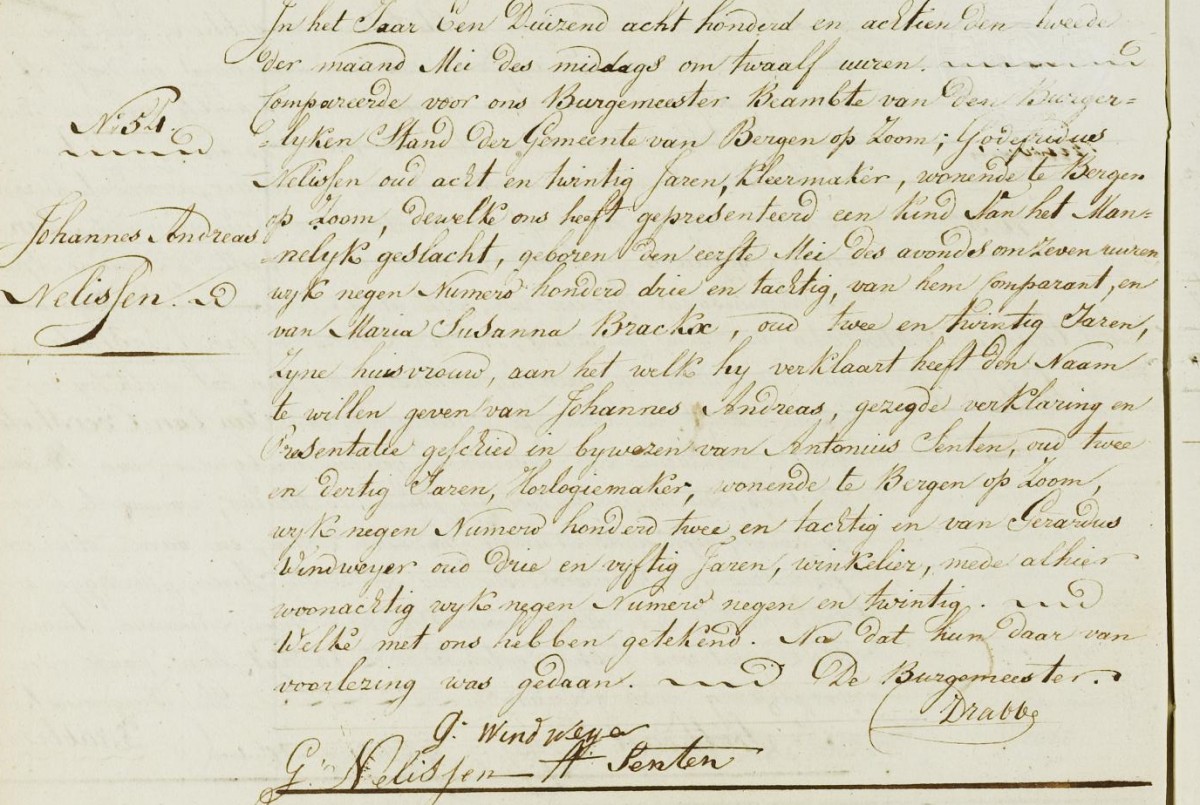 In het Jaar Een Duizend acht honderd en achtien den tweede
der maand Mei des middags om twaalf uuren.
Compareerde voor ons Burgemeester Beambte van den Burger-
N. 54.
-lyken Stand der Gemeente van Bergen op Zoom; Godefridus
Nelissen oud acht en twintig Jaren, kleermaker, wonende te Bergen
op Zoom, dewelke ons heeft gepresenteerd een kind Van het Man-
Johannes Andreas
-nelyk geslacht, geboren den eerste Mei des avonds om zeven uuren,
Nelissen.
wyk negen Numero honderd drie en tachtig, van hem Comparant, en
van Maria Susanna Brackx, oud twee en twintig Jaren,
Zyne huisvrouw, aan het welk hy verklaart heeft den Naam
te willen geven van Johannes Andreas, gezegde verklaring en
Presentatie geschied in bywezen van Antonius Senten, oud twee
en dertig Jaren, Horlogiemaker, wonende te Bergen op Zoom,
wyk negen Numero honderd twee en tachtig en van Gerardus
Windweyer oud drie en vyftig Jaren, winkelier, mede alhier
woonachtig wyk negen Numero negen en twintig.
Welke met ons hebben getekend. Na dat hun daar van
voorlezing was gedaan. De Burgemeester.
Drabbe
G. Windweyer
G. Nelissen A. Senten